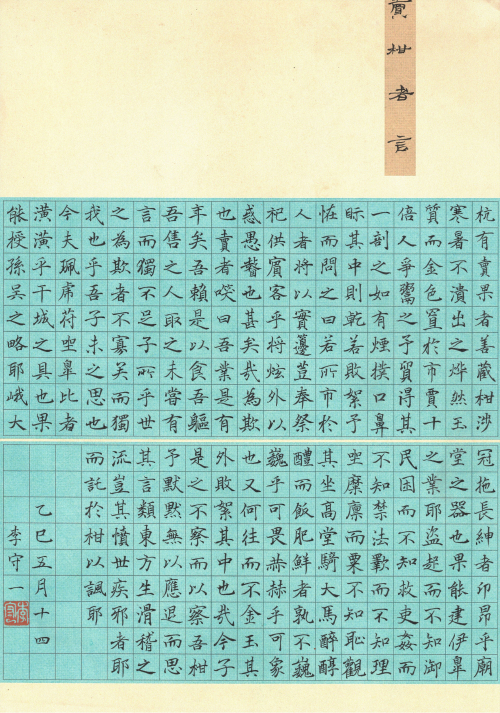 賣柑者言
杭有賣果者善藏柑涉
寒暑不潰出之燁然玉
質而金色置於市賈十
倍人爭鬻之予貿得其
一剖之如有煙撲口鼻
眎其中則乾若敗絮予
恠而問之曰若所市於
人者將以實籩豆奉祭
祀供賓客乎將炫外以
惑愚瞽也甚矣哉為欺
也賣者咲曰吾業是有
年矣吾賴是以食吾軀
吾售之人取之未嘗有
言而獨不足子所乎世
之為欺者不寡矣而獨
我也乎吾子未之思也
今夫珮虎符坐皐比者
潢潢乎干城之具也果
能授孫吳之略耶峨大
冠拖長紳者卬昂乎廟
堂之器也果能建伊皐
之業耶盗起而不知御
民困而不知救吏姦而
不知禁法斁而不知理
坐糜廪而粟不知恥觀
其坐高堂騎大馬醉醇
醴而飫肥鮮者孰不巍
巍乎可畏赫赫乎可象
也又何往而不金玉其
外敗絮其中也哉今子
是之不察而以察吾柑
予默默無以應退而思
其言類東方生滑稽之
流豈其憤世疾邪者耶
而託於柑以諷耶
乙巳五月十四
李守一